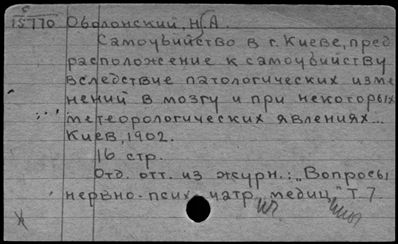 с
15770 Оболонский, Н.А.
Самоубийство в г. Киеве, пред
расположение к самоубийству
вследствие патологических изме
нений в мозгу и при некоторых
метеорологических явлениях...
Киев, 1902.
16 стр.
Отд. отт. из журн.: „Вопросы
нервно-псих иатр. медиц." Т. 7